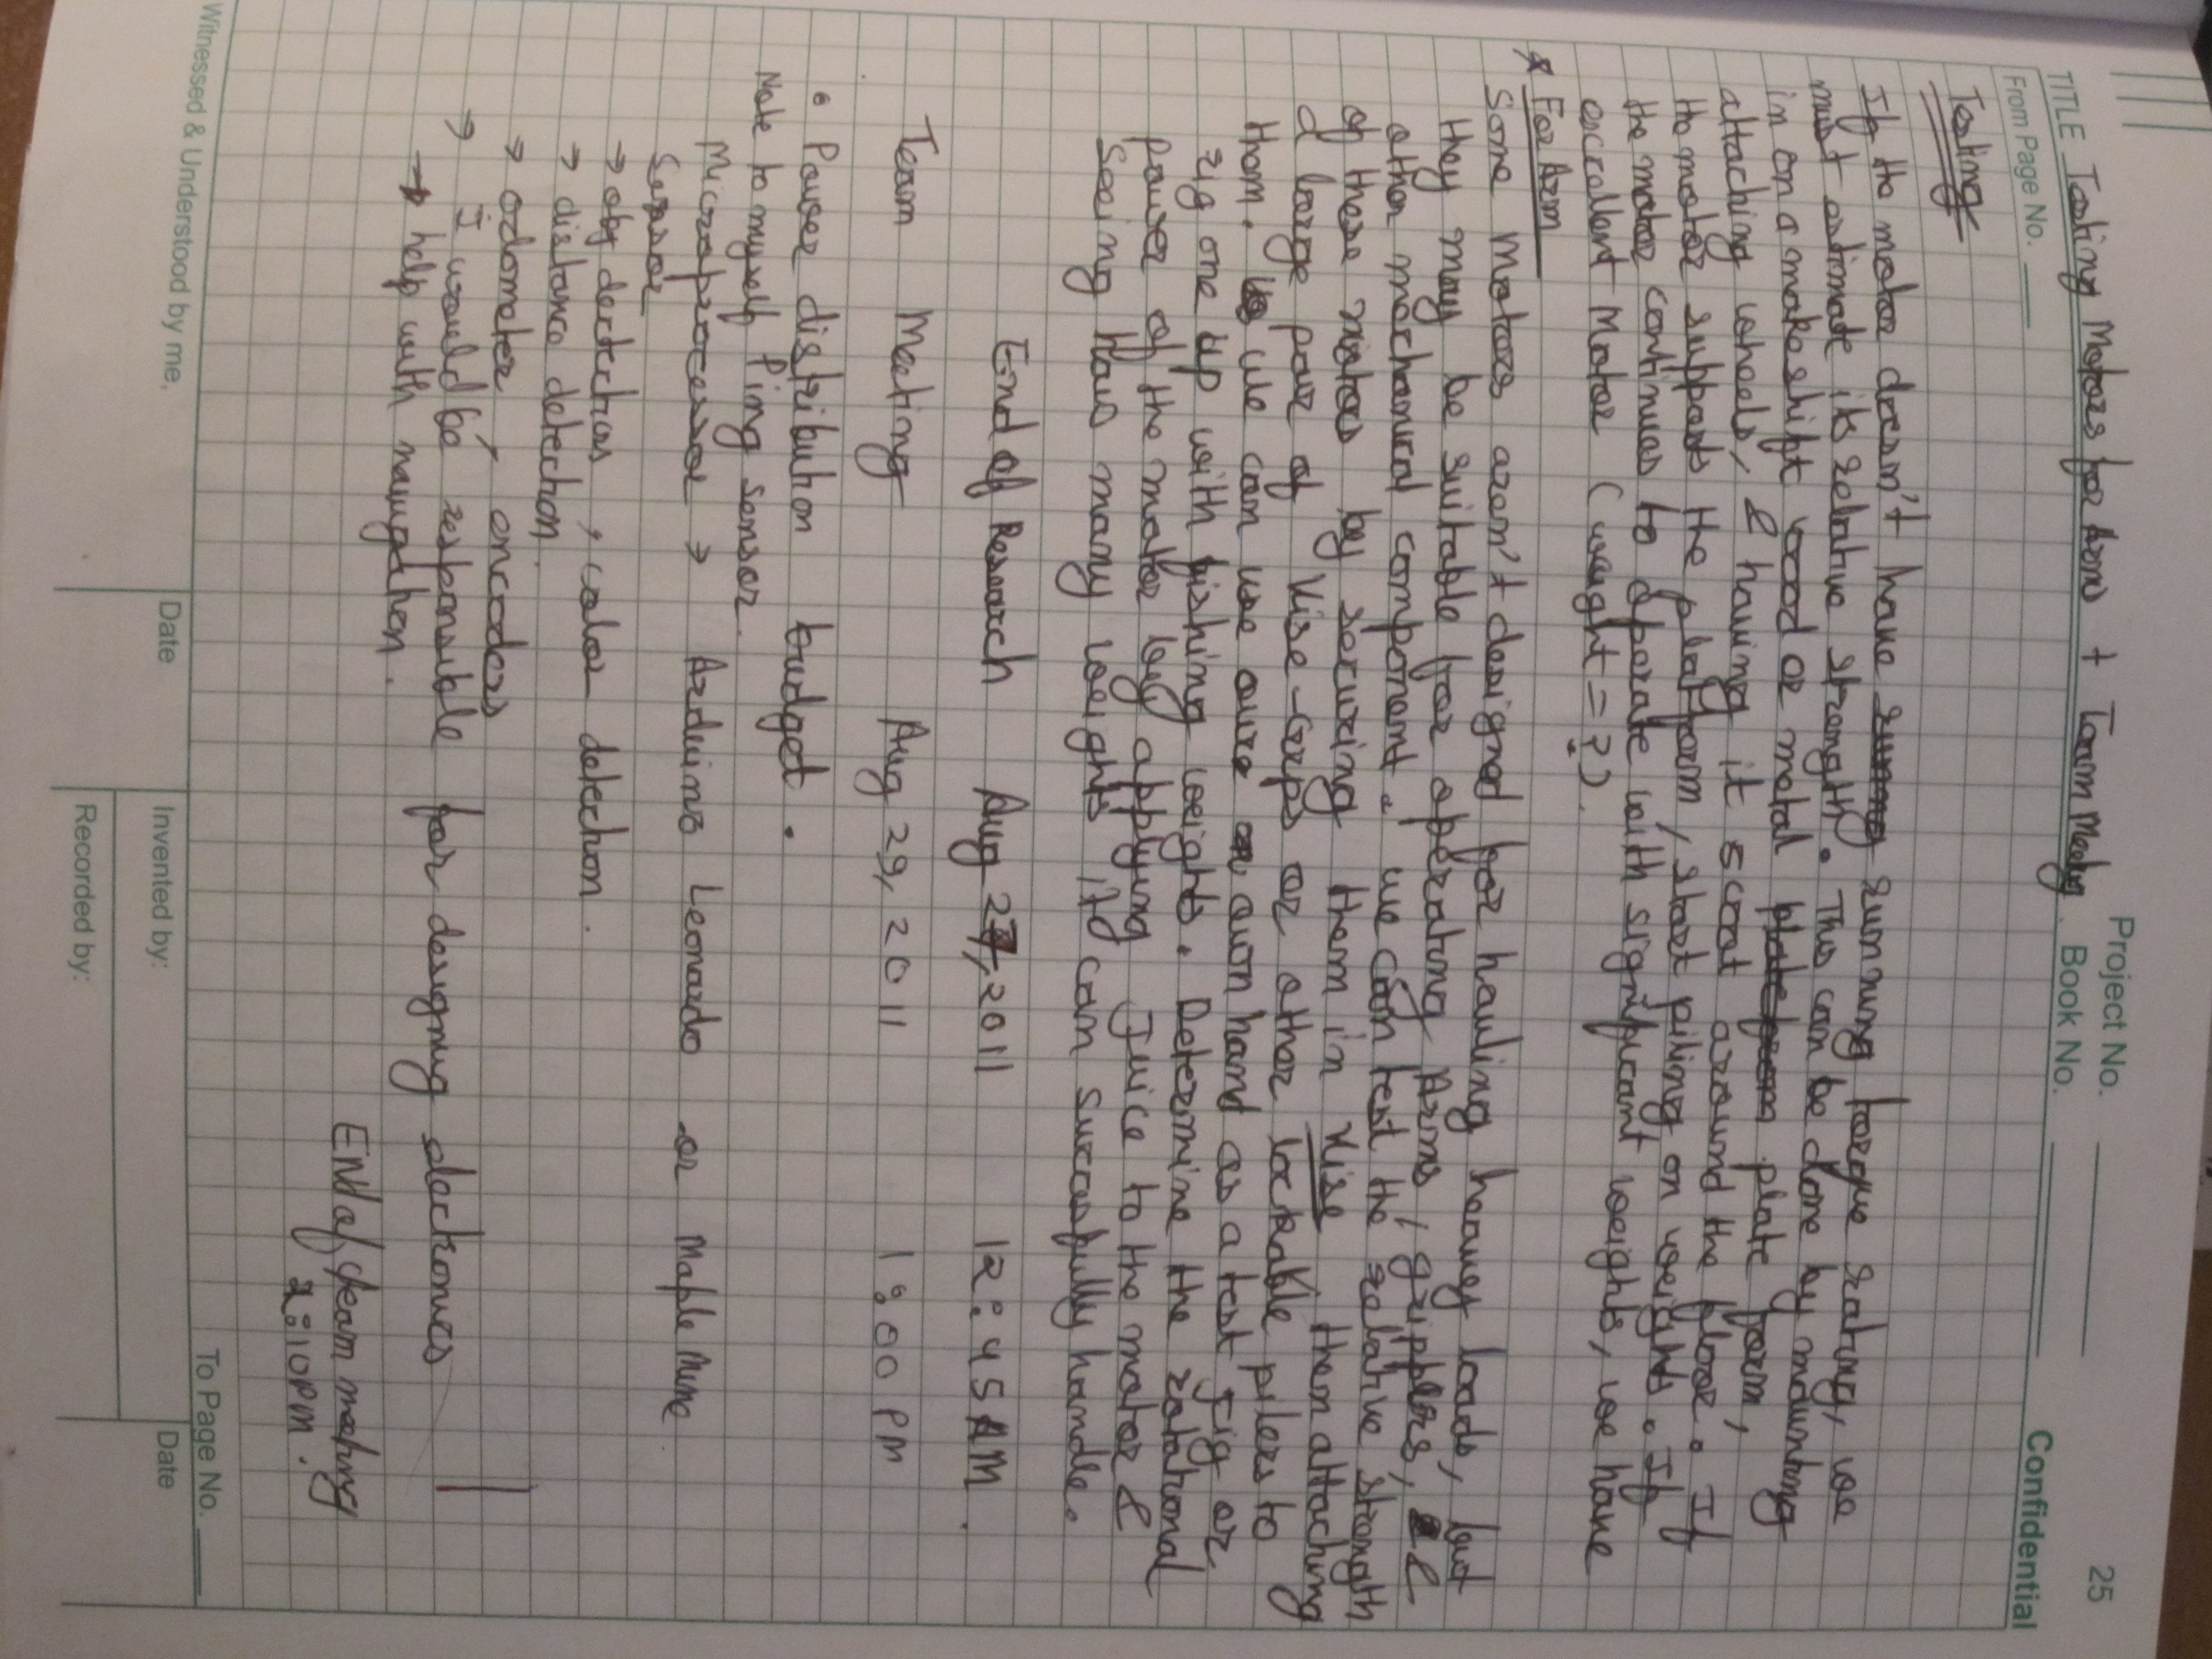 TITLE Testing Motors for Arms + Team Meeting
Project No.
Book No.
25
Confidential
From Page No.
Testing
If the motor doesn't have running torque rating, we
must estimate its relative strength. This can be done by mounting
in on a makeshift wood or metal plate form,
attaching wheels, & having it scoot around the floor. If
the motor supports the platform, start piling on weights. If
the motor continues to operate with significant weights, we have
excellent Motor (weight = ?).
* For Arm
Some Motors aren't designed for hauling heavy loads, but
they may be suitable for operating Arms, grippers, &
other mechanical component. We can test the relative strength
of these motors by securing them in Vise, then attaching
a large pair of Vise-Grips or other lockable pliers to
them. We can use our own hand as a test jig or
rig one up with fishing weights. Determine the rotational
power of the motor by applying Juice to the motor &
seeing how many weights it can successfully handle.
End of Research Aug 27, 2011 12:45 AM.
Team Meeting Aug 29, 2011 1:00 PM
• Power distribution budget.
Note to myself Ping sensor.
Microprocessor → Arduino Leonardo or Maple Mine
Sensor
→ obj detections, color detection.
→ distance detection.
→ odometer, encoders
→ I would be responsible for designing electronics
→ help with navigation.
End of team meeting
2:10PM.
To Page No.
Witnessed & Understood by me,
Date
Invented by:
Date
Recorded by: